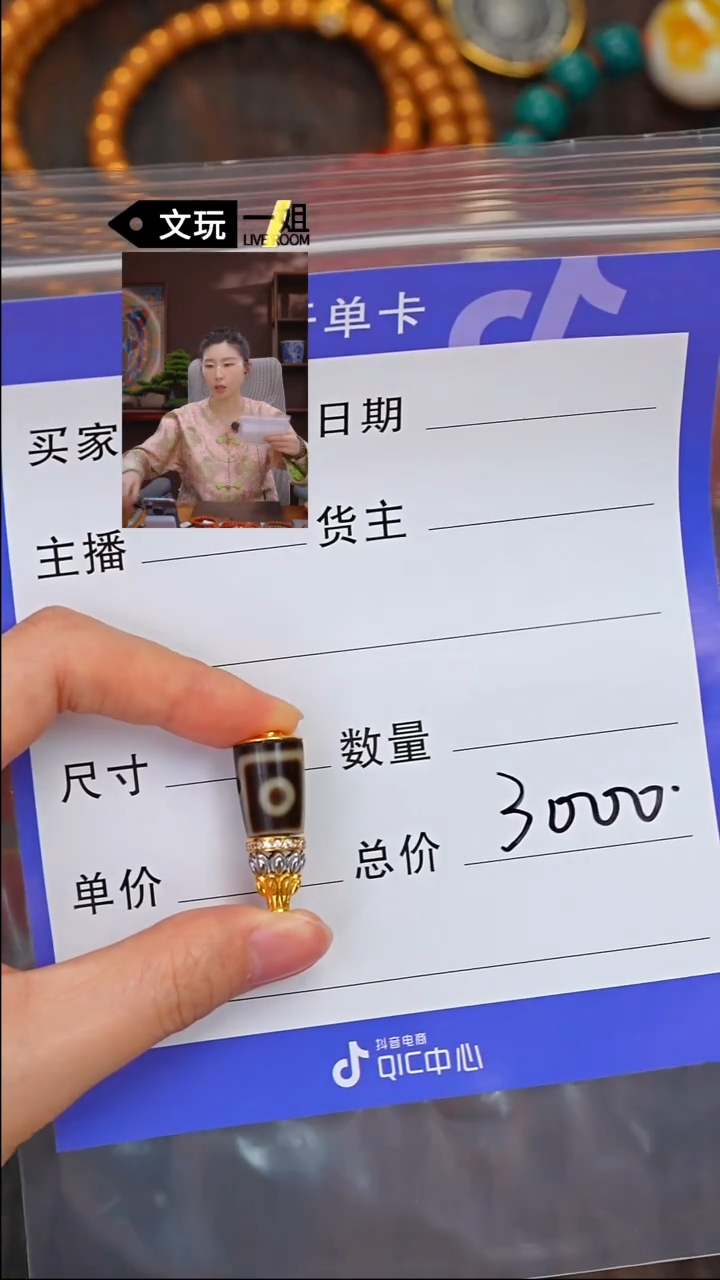 文玩一姐
LIVE ROOM
单卡
买家
日期
主播
货主
尺寸
数量
单价
总价 3000.
抖音电商
QIC中心